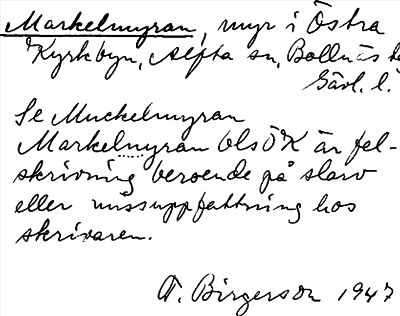 Markelmyran, myr i Östra
Kyrkbyn, Alfta sn, Bollnäs
Gävl. l.
Se Muckelmyran
Markelmyran bls ÖK är fel-
skrivning beroende på slarv
eller missuppfattning hos
skrivaren.
T. Birgerson 1947